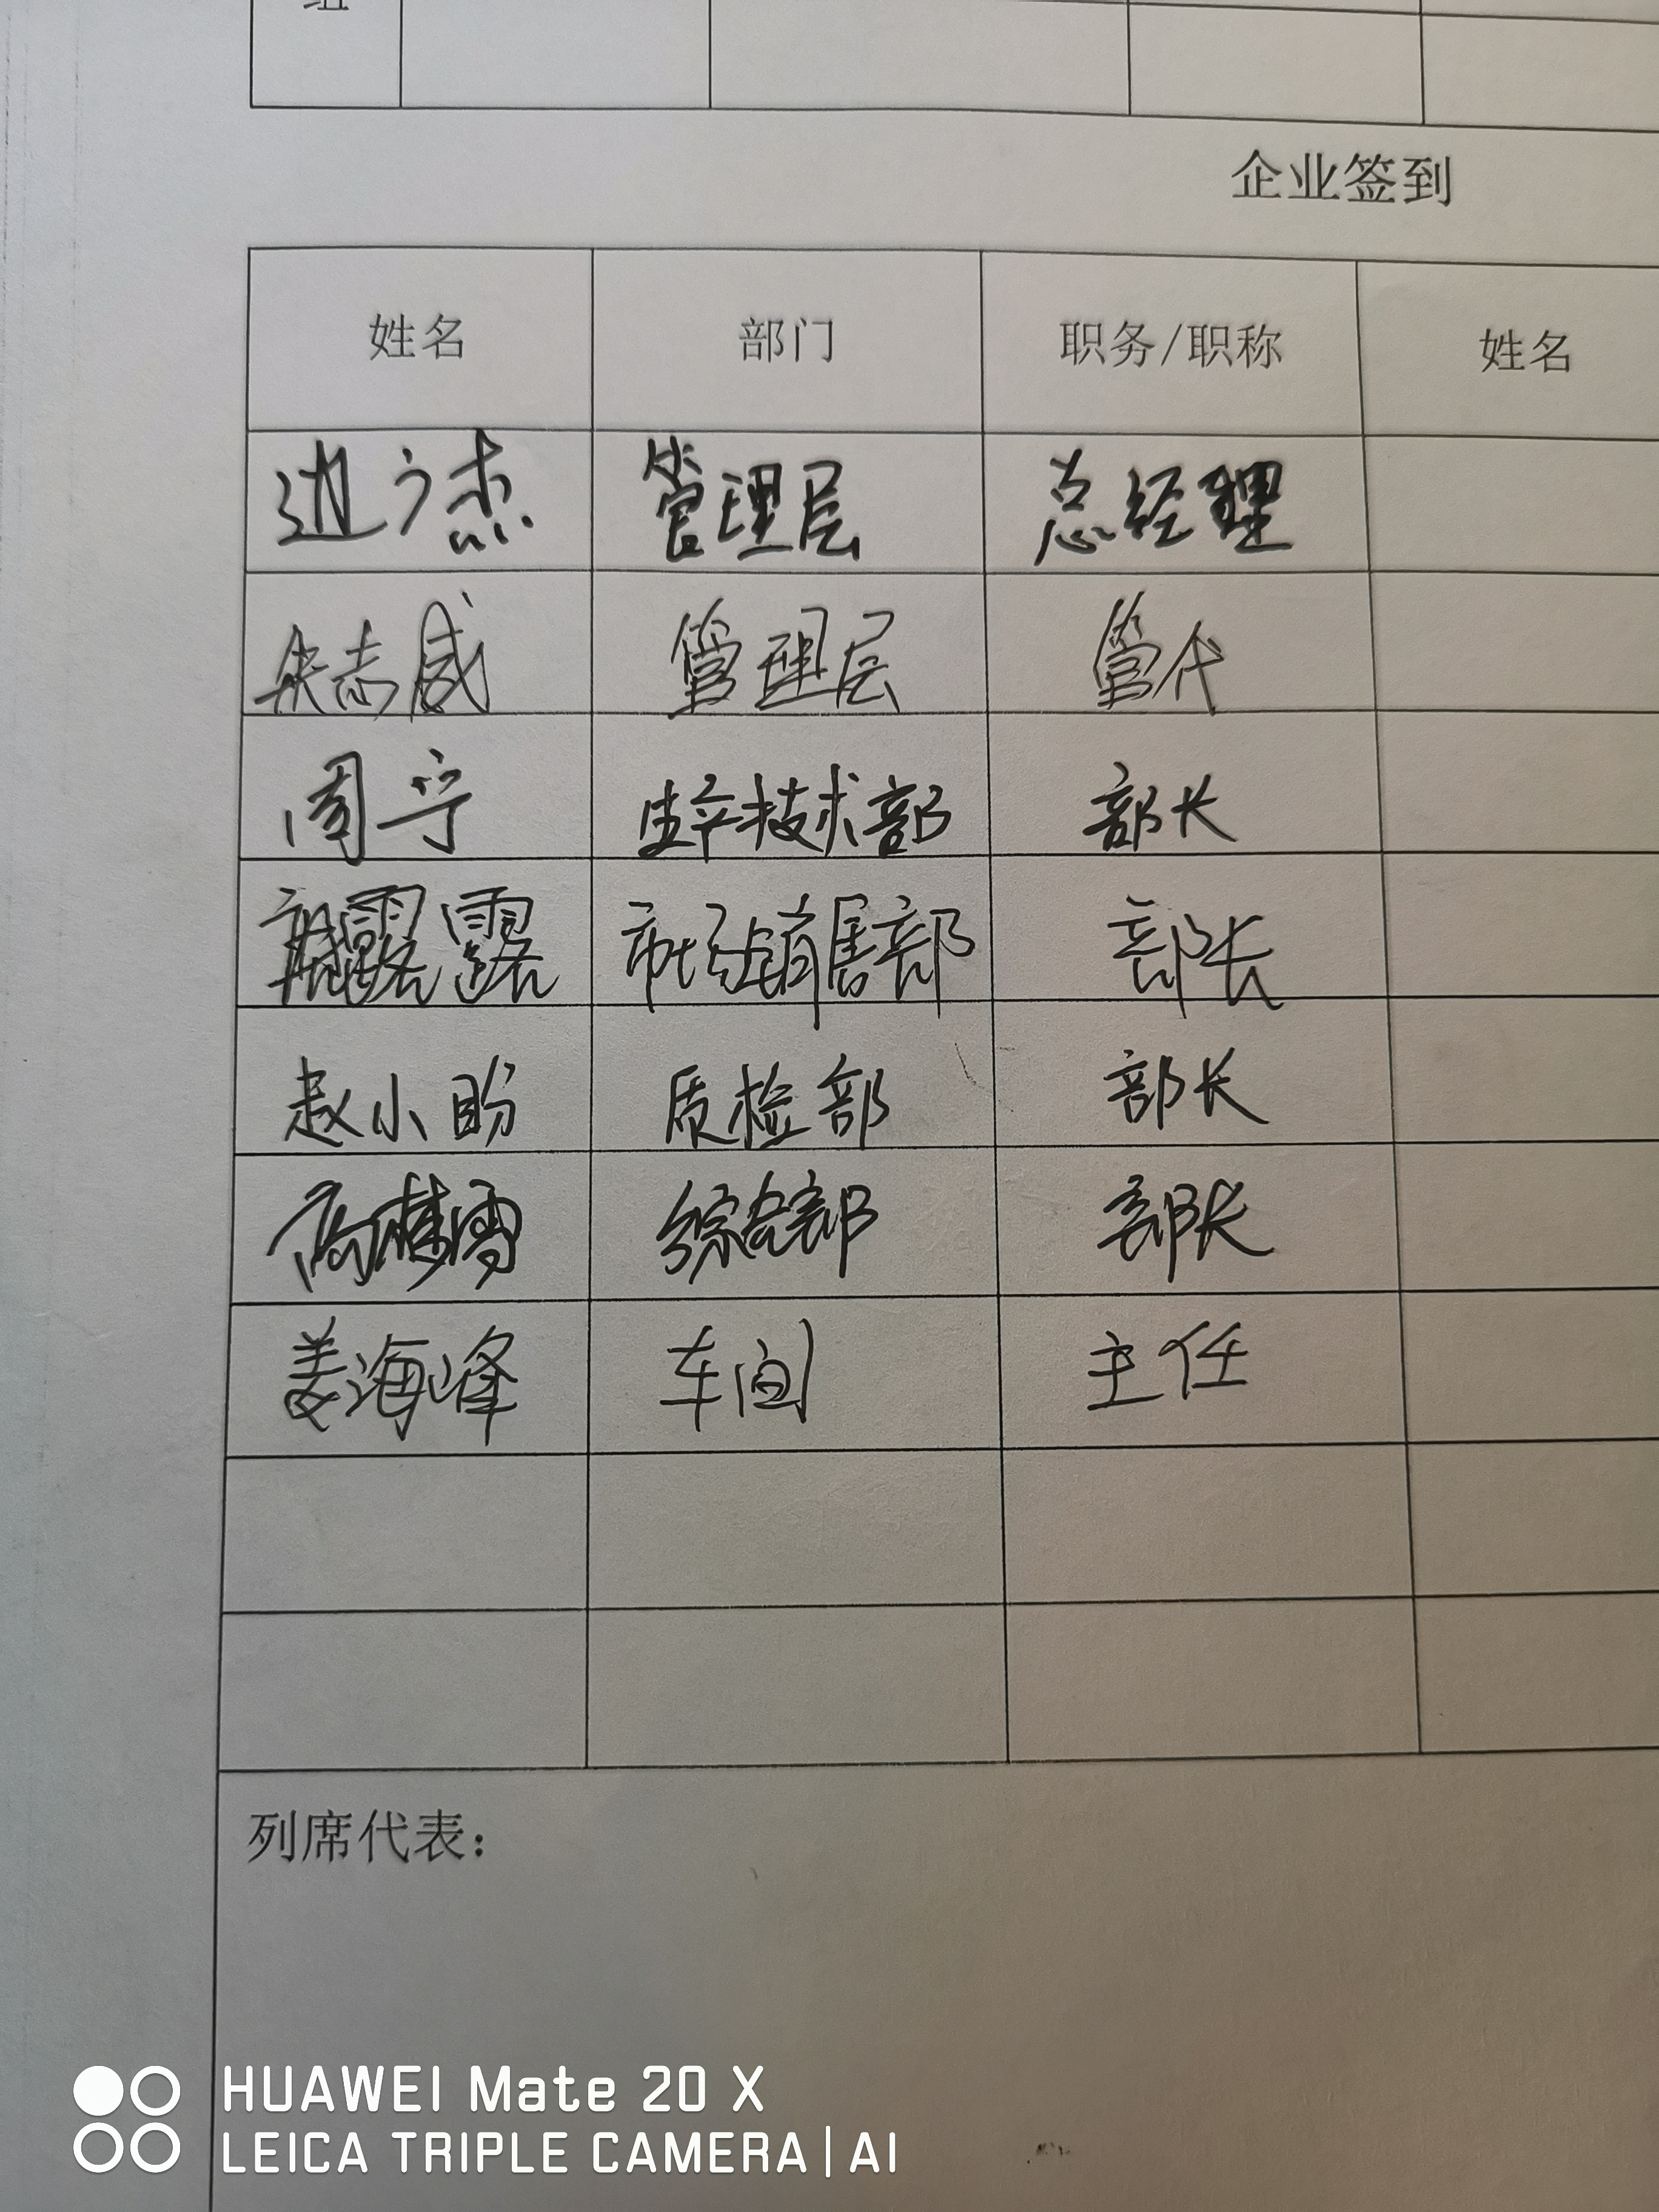 企业签到
姓名 部门 职务/职称 姓名
边广杰 管理层 总经理
朱志威 管理层 管代
周宁 生产技术部 部长
露露 市场销售部 部长
赵小盼 质检部 部长
高梦雪 综合部 部长
姜海峰 车间 主任
列席代表：
HUAWEI Mate 20 X
LEICA TRIPLE CAMERA | AI